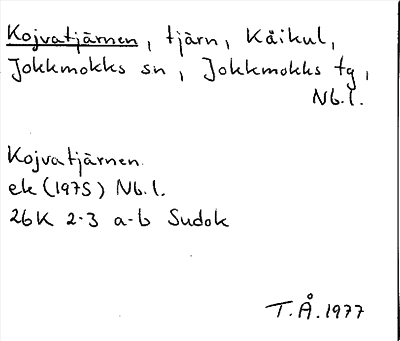 Kojvatjärnen, tjärn, Kåikul,
Jokkmokks sn, Jokkmokks tg,
Nb.l.
Kojvatjärnen
ek (1975) Nb.l.
26K 2-3 a-b Sudok
T.Å. 1977